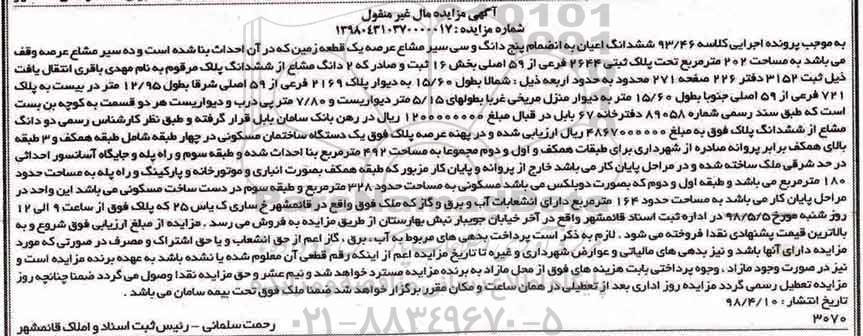 آگهی مزایده مال غیر منقول
شماره مزایده : ۱۳۹۸۰۴۳۱۰۳۷۰۰۰۰۰۱۷
به موجب پرونده اجرایی کلاسه ۹۳/۴۶ ششدانگ اعیان به انضمام پنج دانگ و سی سیر مشاع عرصه یک قطعه زمین که در آن احداث بنا شده است و ده سیر مشاع عرصه وقف
می باشد به مساحت ۲۰۲ مترمربع تحت پلاک ثبتی ۲۶۴۴ فرعی از ۵۹ اصلی بخش ۱۶ ثبت و صادر که ۲ دانگ مشاع از ششدانگ پلاک مرقوم به نام مهدی باقری انتقال یافت
ذیل ثبت ۳۱۵۲ دفتر ۲۲۶ صفحه ۲۷۱ محدود به حدود اربعه ذیل : شمالا بطول ۱۵/۶۰ به دیوار پلاک ۲۱۶۹ فرعی از ۵۹ اصلی شرقا بطول ۱۲/۹۵ متر در بیست به پلاک
۷۲۱ فرعی از ۵۹ اصلی جنوبا بطول ۱۵/۶۰ متر به دیوار منزل مریخی غربا بطولهای ۵/۱۵ متر دیواریست و ۷/۸۰ متر پی درب و دیواریست هر دو قسمت به کوچه بن بست
است که طبق سند رسمی شماره ۸۹۰۵۸ دفترخانه ۶۷ بابل در قبال مبلغ ۱۲۰۰۰۰۰۰۰۰ ریال در رهن بانک سامان بابل قرار گرفته و طبق نظر کارشناس رسمی دو دانگ
مشاع از ششدانگ پلاک فوق به مبلغ ۴۸۶۷۰۰۰۰۰۰ ریال ارزیابی شده و در پهنه عرصه پلاک فوق یک دستگاه ساختمان مسکونی در چهار طبقه شامل طبقه همکف و ۳ طبقه
بالای همکف برابر پروانه صادره از شهرداری برای طبقات همکف و اول و دوم مجموعا به مساحت ۴۹۲ مترمربع بنا احداث شده و طبقه سوم و راه پله و جایگاه آسانسور احداثی
در حد شرقی ملک ساخته شده و در مراحل پایان کار می باشد خارج از پروانه و پایان کار مزبور که طبقه همکف بصورت انباری و موتورخانه و پارکینگ و راه پله به مساحت حدود
۱۸۰ مترمربع می باشد و طبقه اول و دوم که بصورت دوبلکس می باشد مسکونی به مساحت حدود ۳۲۸ مترمربع و طبقه سوم در دست ساخت مسکونی می باشد این واحد در
مراحل پایان کار می باشد به مساحت حدود ۱۶۴ مترمربع دارای انشعابات آب و برق و گاز که ملک فوق واقع در قائمشهر خ ساری ک یاس ۲۵ که پلاک فوق از ساعت ۹ الی ۱۲
روز شنبه مورخ ۹۸/۵/۵ در اداره ثبت اسناد قائمشهر واقع در آخر خیابان جویبار نبش بهارستان از طریق مزایده به فروش می رسد . مزایده از مبلغ ارزیابی فوق شروع و به
بالاترین قیمت پیشنهادی نقدا فروخته می شود . لازم به ذکر است پرداخت بدهی های مربوط به آب ، برق ، گاز اعم از حق انشعاب و یا حق اشتراک و مصرف در صورتی که مورد
مزایده دارای آنها باشد و نیز بدهی های مالیاتی و عوارض شهرداری و غیره تا تاریخ مزایده اعم از اینکه رقم قطعی آن معلوم شده یا نشده باشد به عهده برنده مزایده است و
نیز در صورت وجود مازاد ، وجوه پرداختی بابت هزینه های فوق از محل مازاد به برنده مزایده مسترد خواهد شد و نیم عشر و حق مزایده نقدا وصول می گردد ضمنا چنانچه روز
مزایده تعطیل رسمی گردد مزایده روز اداری بعد از تعطیلی در همان ساعت و مکان مقرر برگزار خواهد شد ضمنا ملک فوق تحت بیمه سامان می باشد .
تاریخ انتشار : ۹۸/۴/۱۰
رحمت سلمانی - رئیس ثبت اسناد و املاک قائمشهر
۳۰۷۰
۰۲۱-۸۸۳۴۹۶۷۰-۵